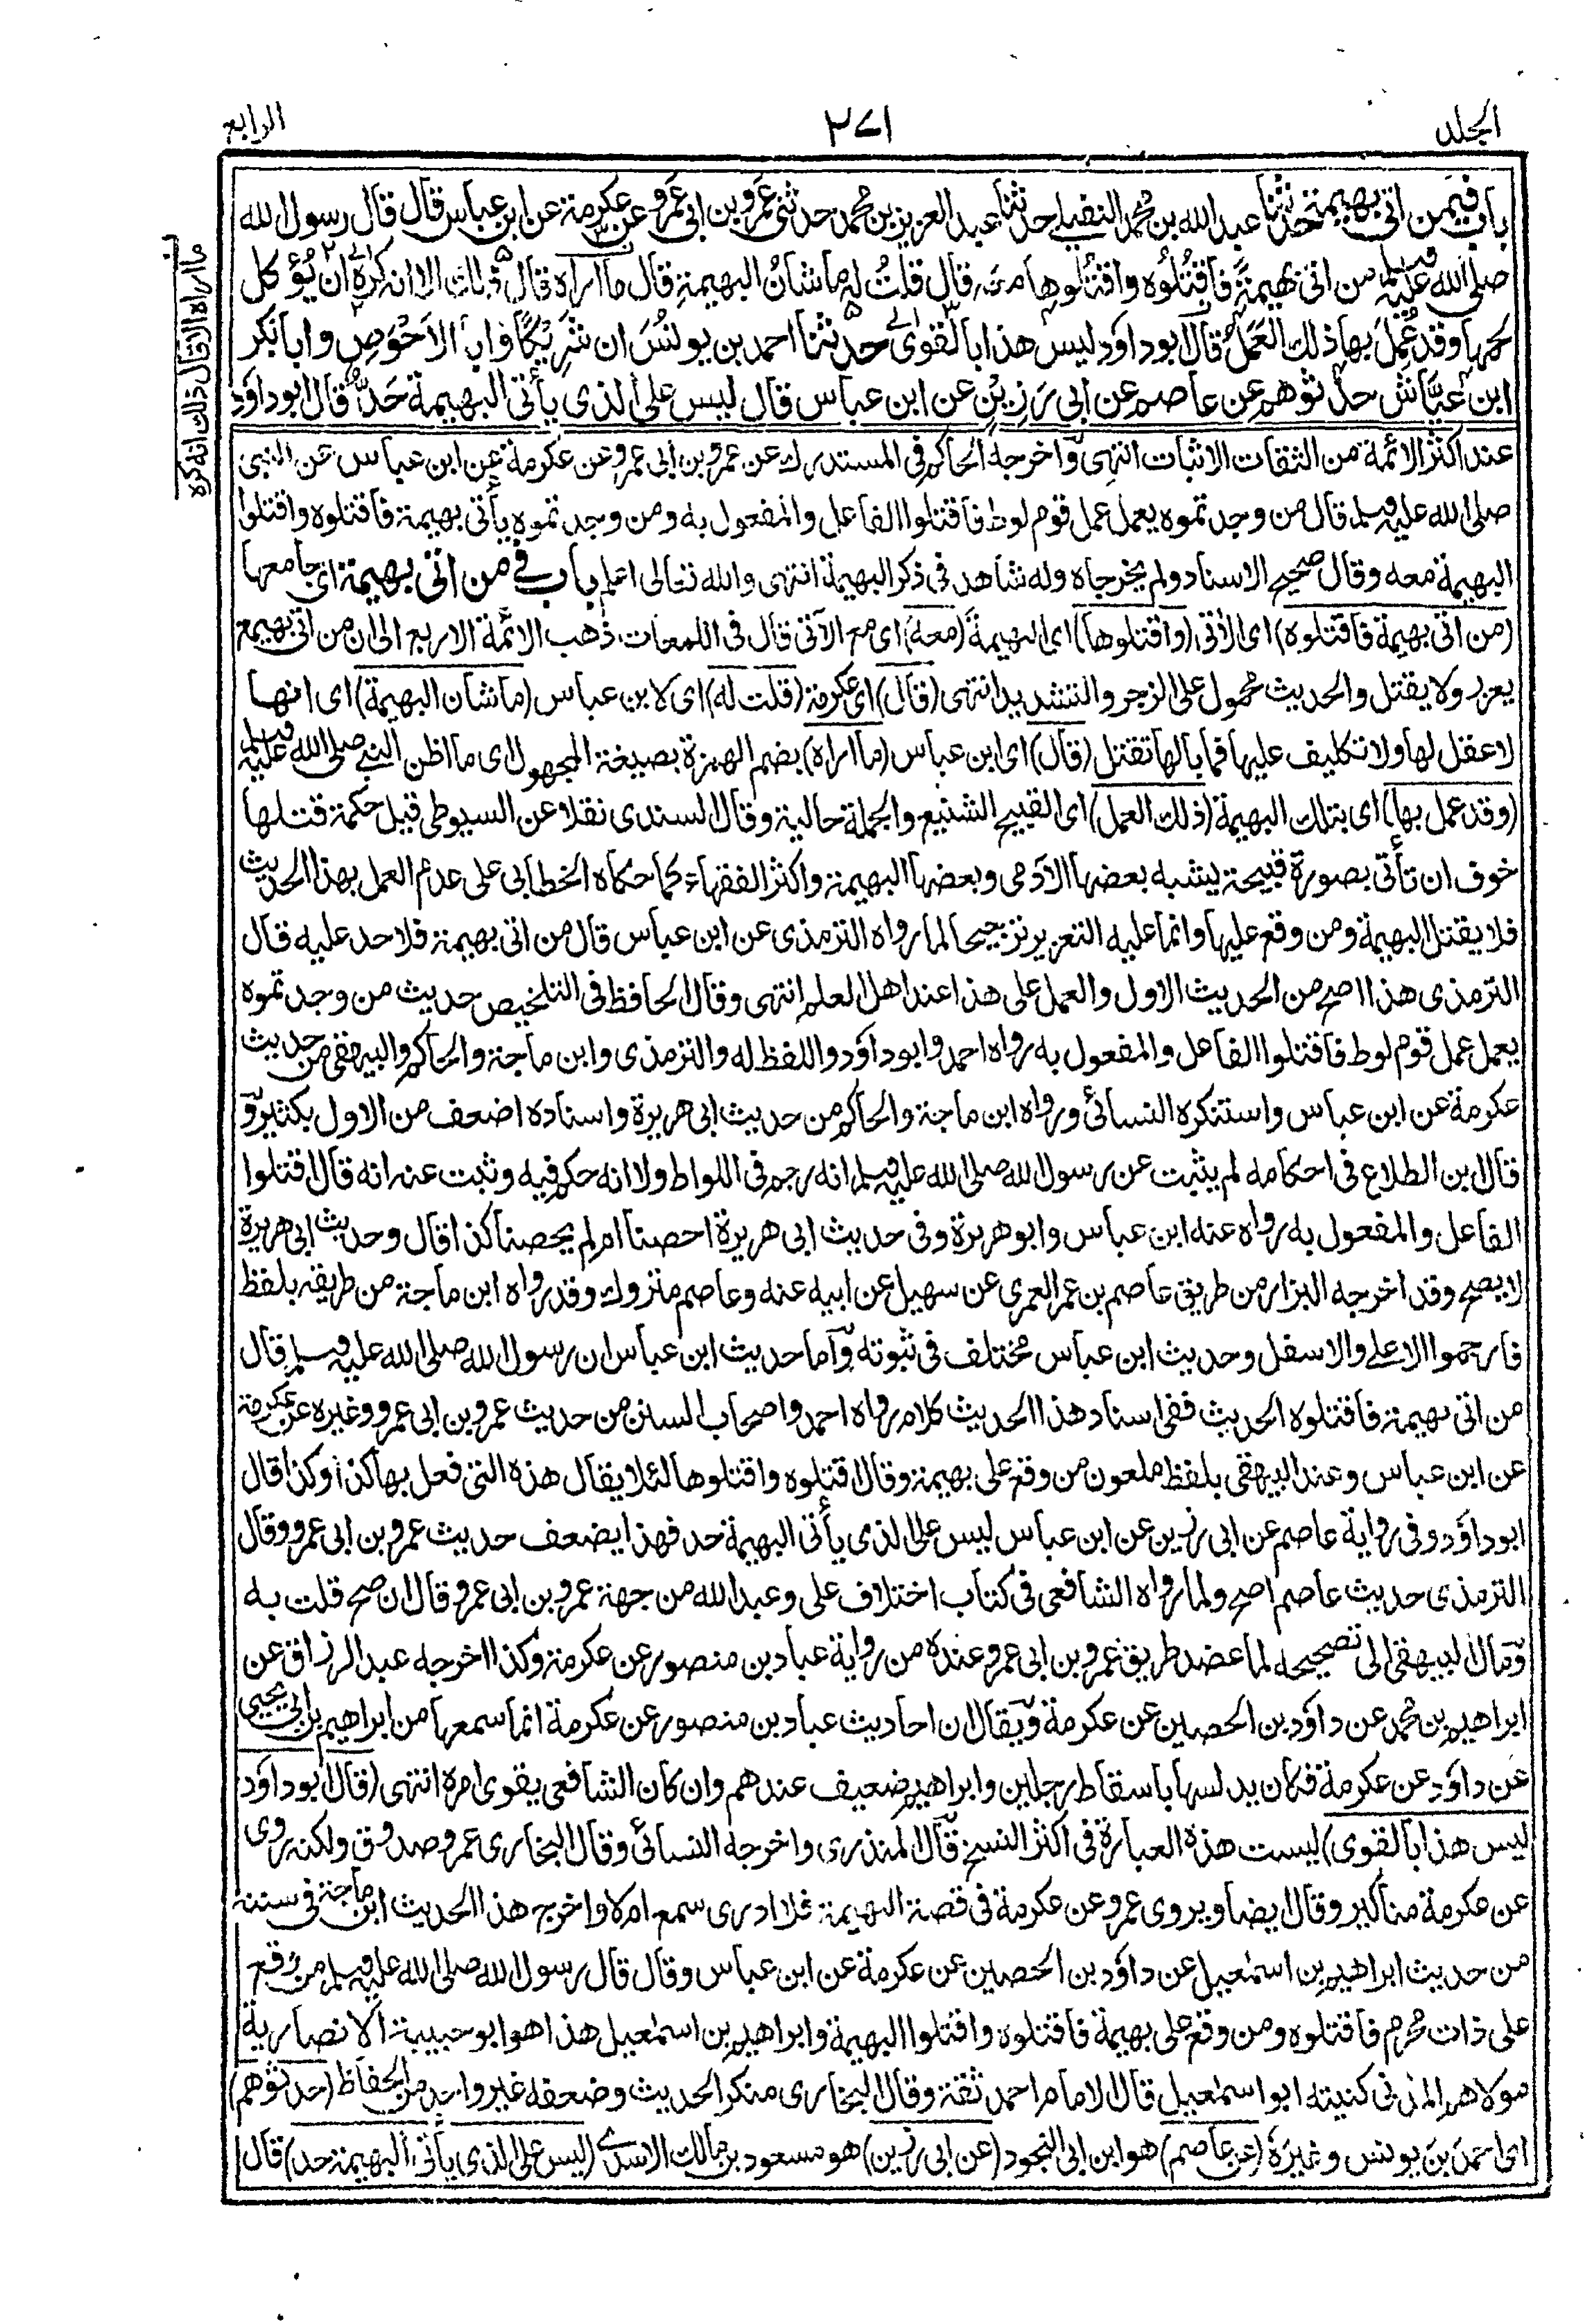 الجلد
٢٧١
الرابع
باب فيمن اتى بهيمة حدثنا عبد الله بن محمد النفيلي حدثنا عبد العزيز بن محمد حدثني عمرو بن ابى عمرو عن عكرمة عن ابن عباس قال قال رسول الله
صلى الله عليه وسلم من اتى بهيمةً فاقتُلُوه واقتُلُوها معه قال قلتُ له ما شانُ البهيمةِ قال ما اراه قال ذلك الا انه كَرِهَ ان يُؤكل
لحمها وقد عُمِلَ بها ذلك العَمَلُ قال ابوداود ليس هذا بالقوى حدثنا احمد بن يونُسَ ان شَرِيْكًا وابا الاَحْوَصِ وابا بَكر
ابن عيَّاش حدَّثوهم عن عاصم عن ابى رَزِيْنٍ عن ابن عباس قال ليس على الذى يأتى البهيمة حَدٌّ قال ابوداؤد
عند اكثر الائمة من الثقات الاثبات انتهى واخرجه الحاكم فى المستدرك عن عمرو بن ابى عمرو عن عكرمة عن ابن عباس عن النبى
صلى الله عليه وسلم قال من وجدتموه يعمل عمل قوم لوط فاقتلوا الفاعل والمفعول به ومن وجدتموه يأتى بهيمة فاقتلوه واقتلوا
البهيمة معه وقال صحيح الاسناد ولم يخرجاه وله شاهد فى ذكر البهيمة انتهى والله تعالى اعلم باب في من اتى بهيمة اى جامعها
(من اتى بهيمة فاقتلوه) اى الآتى (واقتلوها) اى البهيمة (معه) اى مع الآتى قال فى اللمعات ذهب الائمة الاربع الى ان من اتى بهيمة
يعزر ولا يقتل والحديث محمول على الزجر والتشديد انتهى (قال) اى عكرمة (قلت له) اى لابن عباس (ما شان البهيمة) اى انها
لا عقل لها ولا تكليف عليها فما بالها تقتل (قال) اى ابن عباس (ما اراه) بضم الهمزة بصيغة المجهول اى ما اظن النبي صلى الله عليه وسلم
(وقد عمل بها) اى بتلك البهيمة (ذلك العمل) اى القبيح الشنيع والجملة حالية وقال السندى نقلا عن السيوطى قيل حكمة قتلها
خوف ان تأتى بصورة قبيحة يشبه بعضها الآدمى وبعضها البهيمة واكثر الفقهاء كما حكاه الخطابى على عدم العمل بهذا الحديث
فلا يقتل البهيمة ومن وقع عليها وانما عليه التعزير ترجيحا لما رواه الترمذى عن ابن عباس قال من اتى بهيمة فلا حد عليه قال
الترمذى هذا اصح من الحديث الاول والعمل على هذا عند اهل العلم انتهى وقال الحافظ فى التلخيص حديث من وجدتموه
يعمل عمل قوم لوط فاقتلوا الفاعل والمفعول به رواه احمد وابو داؤد واللفظ له والترمذى وابن ماجة والحاكم والبيهقى من حديث
عكرمة عن ابن عباس واستنكره النسائى ورواه ابن ماجة والحاكم من حديث ابى هريرة واسناده اضعف من الاول بكثير و
قال ابن الطلاع فى احكامه لم يثبت عن رسول الله صلى الله عليه وسلم انه رجم فى اللواط ولا انه حكم فيه وثبت عنه انه قال اقتلوا
الفاعل والمفعول به رواه عنه ابن عباس وابو هريرة وفى حديث ابى هريرة احصنا ام لم يحصنا كذا قال وحديث ابى هريرة
لا يصح وقد اخرجه البزار من طريق عاصم بن عمر العمرى عن سهيل عن ابيه عنه وعاصم متروك وقد رواه ابن ماجة من طريقه بلفظ
فارجموا الاعلى والاسفل وحديث ابن عباس مختلف فى ثبوته واما حديث ابن عباس ان رسول الله صلى الله عليه وسلم قال
من اتى بهيمة فاقتلوه الحديث ففى اسناد هذا الحديث كلام رواه احمد واصحاب السنن من حديث عمرو بن ابى عمرو وغيره عن عكرمة
عن ابن عباس وعند البيهقى بلفظ ملعون من وقع على بهيمة وقال اقتلوه واقتلوها لئلا يقال هذه التى فعل بها كذا وكذا قال
ابوداؤد وفى رواية عاصم عن ابى رزين عن ابن عباس ليس على الذى يأتى البهيمة حد فهذا يضعف حديث عمرو بن ابى عمرو وقال
الترمذى حديث عاصم اصح ولما رواه الشافعى فى كتاب اختلاف على وعبد الله من جهة عمرو بن ابى عمرو قال ان صح قلت به
ومال البيهقى الى تصحيحه لما عضد طريق عمرو بن ابى عمرو عنده من رواية عباد بن منصور عن عكرمة وكذا اخرجه عبد الرزاق عن
ابراهيم بن محمد عن داؤد بن الحصين عن عكرمة ويقال ان احاديث عباد بن منصور عن عكرمة انما سمعها من ابراهيم بن ابى يحيى
عن داؤد عن عكرمة فكان يدلسها باسقاط رجلين وابراهيم ضعيف عندهم وان كان الشافعى يقوى امره انتهى (قال ابوداؤد
ليس هذا بالقوى) ليست هذه العبارة فى اكثر النسخ قال المنذرى واخرجه النسائى وقال البخارى عمرو صدوق ولكنه روى
عن عكرمة مناكير وقال ايضا ويروى عمرو عن عكرمة فى قصة البهيمة فلا ادرى سمع ام لا واخرج هذا الحديث ابن ماجة فى سننه
من حديث ابراهيم بن اسمٰعيل عن داؤد بن الحصين عن عكرمة عن ابن عباس وقال قال رسول الله صلى الله عليه وسلم من وقع
على ذات محرم فاقتلوه ومن وقع على بهيمة فاقتلوه واقتلوا البهيمة وابراهيم بن اسمٰعيل هذا هو ابو حبيبة الانصارية
مولاهم المدنى كنيته ابو اسمٰعيل قال الامام احمد ثقة وقال البخارى منكر الحديث وضعفه غير واحد من الحفاظ (حدثوهم)
اى احمد بن يونس وغيره (عن عاصم) هو ابن ابى النجود (عن ابى رزين) هو مسعود بن مالك الاسدي (ليس على الذى يأتى البهيمة حد) قال
ما اراه الا قال ذلك انه كره